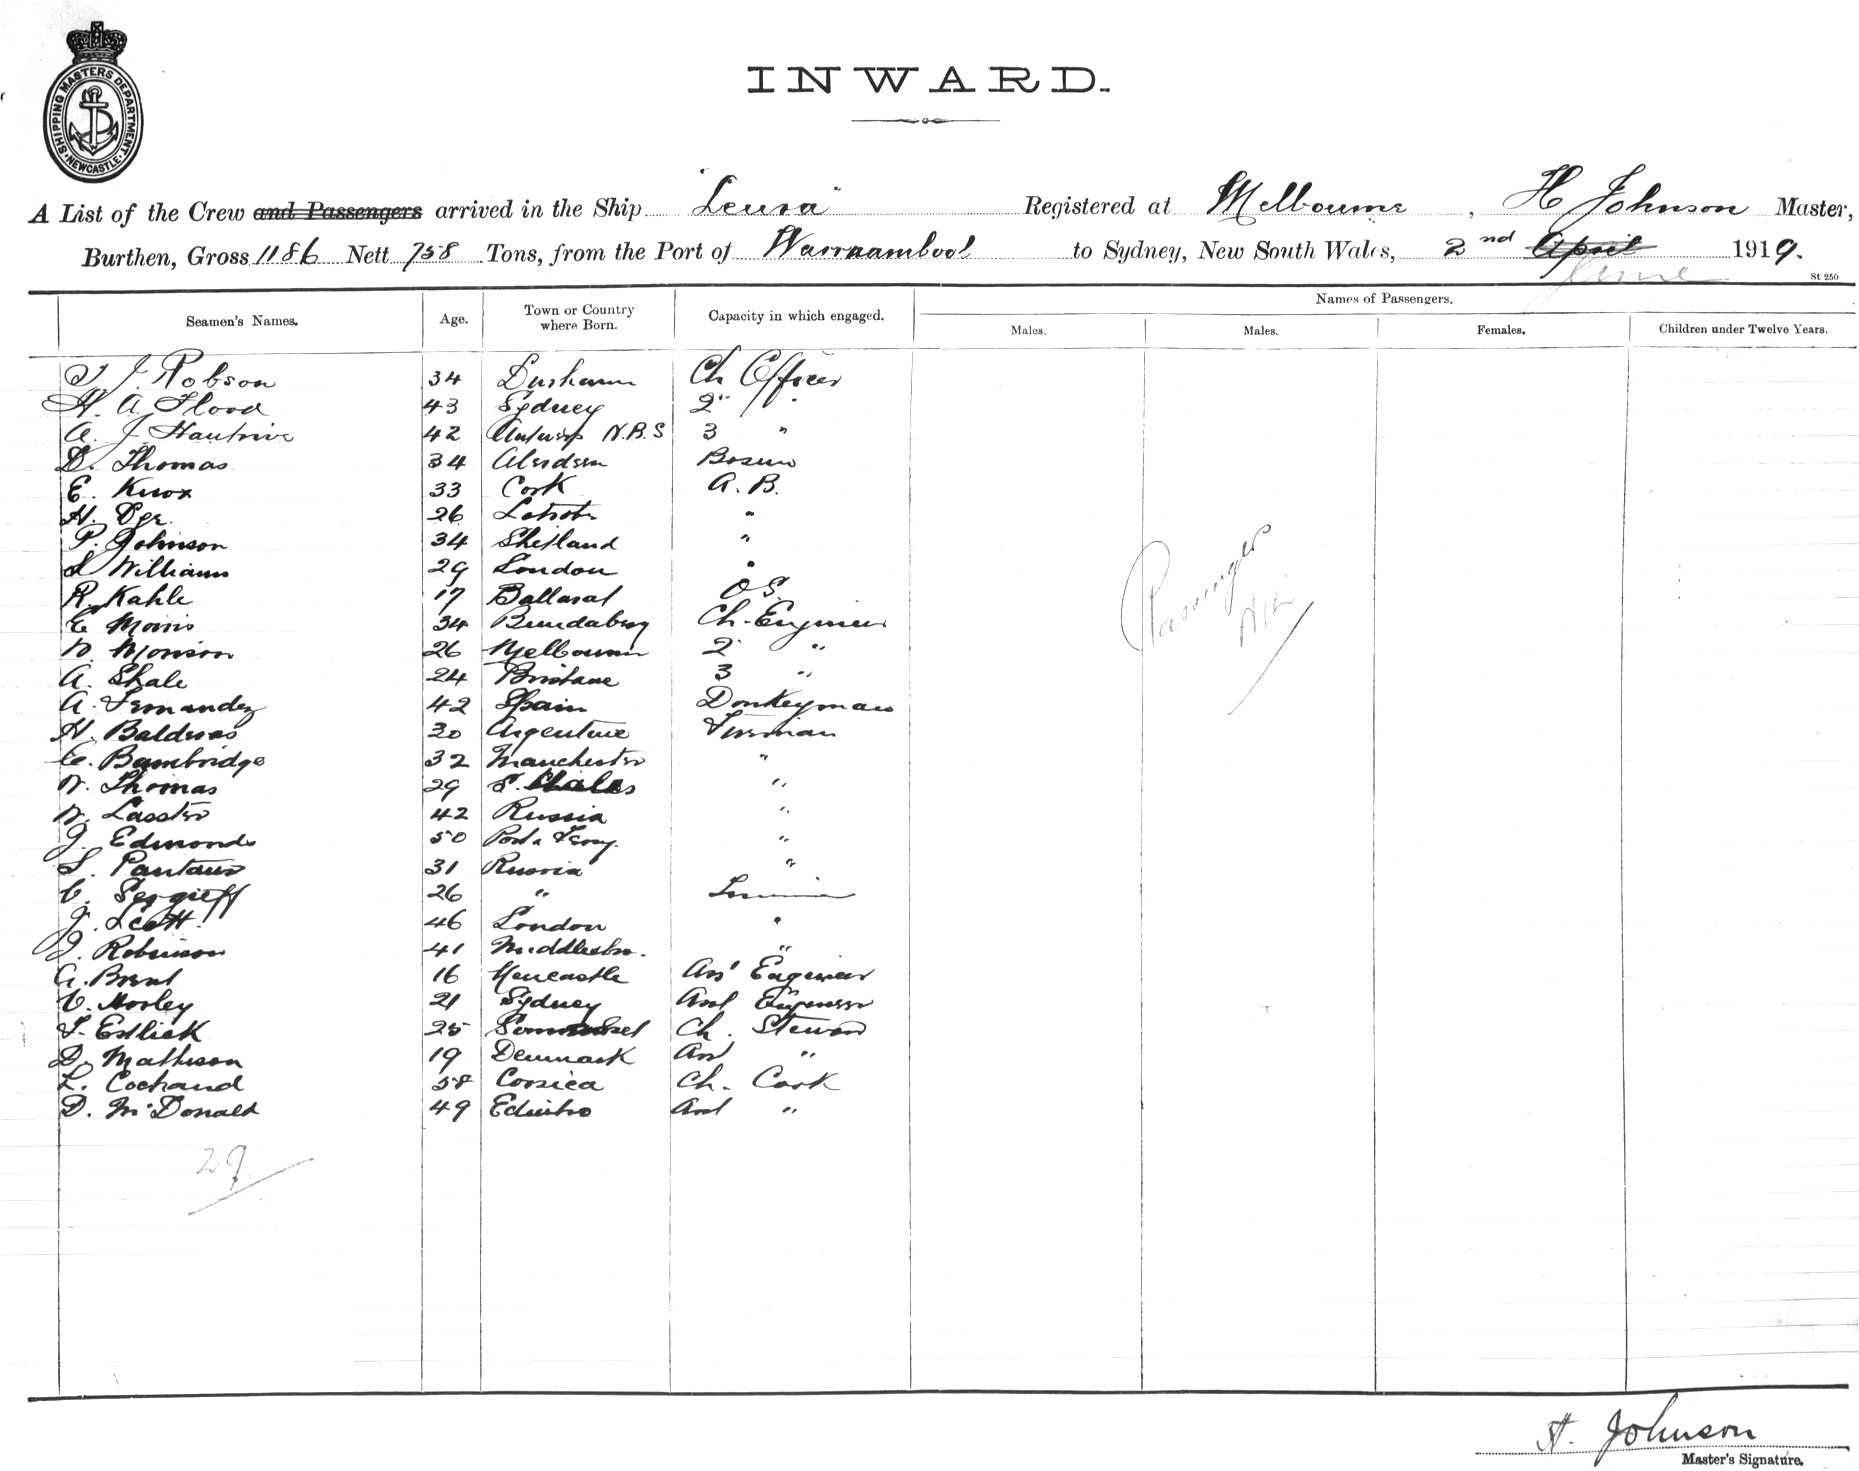 SHIPPING MASTERS DEPARTMENT. NEWCASTLE.
INWARD.
A List of the Crew and Passengers arrived in the Ship "Leura" Registered at Melbourne, H Johnson Master,
Burthen, Gross 1186 Nett 758 Tons, from the Port of Warrnambool to Sydney, New South Wales, 2nd April June 1919.
St 250
Seamen's Names. Age. Town or Country where Born. Capacity in which engaged. Names of Passengers.
Males. Males. Females. Children under Twelve Years.
T J Robson 34 Durham Ch Officer
H. A. Flood 43 Sydney 2 "
A. J. 42 Antwerp N.B.S 3 "
D. Thomas 34 Aberdeen Bosun
E. Knox 33 Cork A. B.
H. 26 Latrobe "
P. Johnson 34 Shetland "
L Williams 29 London "
R. Kahle 17 Ballarat O.S.
E Morris 34 Bundaberg Ch. Engineer
W. Morison 26 Melbourne 2 "
A. Shale 24 Brisbane 3 "
A. Fernandez 42 Spain Donkeyman
H. Balderas 30 Argentine Fireman
C. Bambridge 32 Manchester "
W. Thomas 29 S. Wales "
W. 42 Russia "
J. Edmonds 50 "
S. 31 Russia "
C. Sergieff 26 "
J. Scott 46 London "
J. Robinson 41 Middlesbro. "
A. Brent 16 Newcastle Ass' Engineer
C. Morley 21 Sydney Asst Engineer
F. Estlick 25 Sommerset Ch. Steward
D. Mathison 19 Denmark Asst "
L. Cochand 58 Corsica Ch. Cook
D. McDonald 49 Edinbro Asst "
Passengers
Nil
29
H. Johnson
Master's Signature.